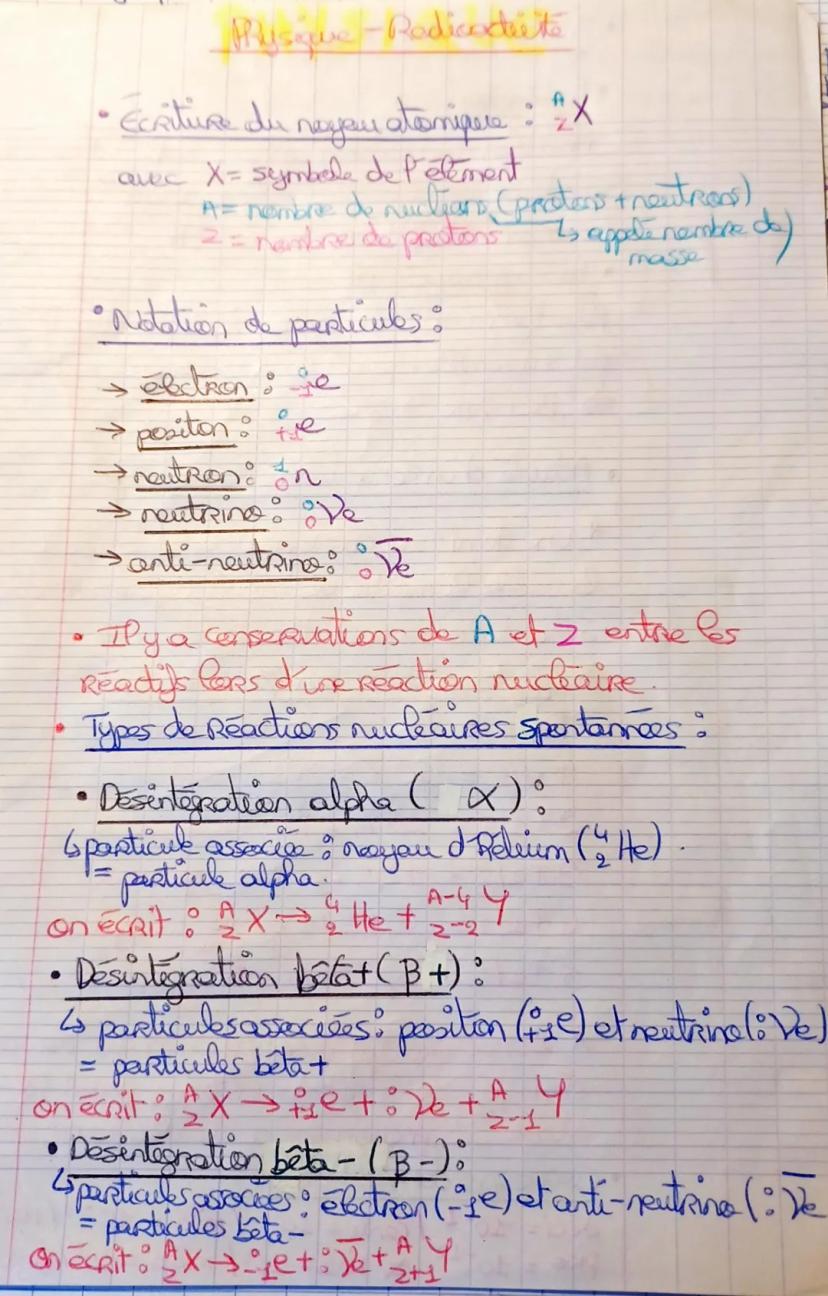 Physique - Radioactivité
• Écriture du noyau atomique : ᴬ_Z X
avec X = symbole de l'élément
A = nombre de nucléons (protons + neutrons)
Z = nombre de protons ↳ appelé nombre de
masse)
• Notation de particules :
→ électron : ⁰₋₁e
→ positon : ⁰₊₁e
→ neutron : ¹₀n
→ neutrino : ⁰₀νe
→ anti-neutrino : ⁰₀ν̅e
• Il y a conservations de A et Z entre les
réactifs lors d'une réaction nucléaire.
• Types de réactions nucléaires spontanées :
• Désintégration alpha ( α ) :
↳ particule associée : noyau d'Hélium (⁴₂He).
= particule alpha.
on écrit : ᴬ_Z X → ⁴₂He + ᴬ⁻⁴_Z-2 Y
• Désintégration bêta+ (β+) :
↳ particules associées : position (⁰₊₁e) et neutrino (⁰₀νe)
= particules bêta+
on écrit : ᴬ_Z X → ⁰₊₁e + ⁰₀νe + ᴬ_Z-1 Y
• Désintégration bêta- (β-) :
↳ particules associées : électron (⁰₋₁e) et anti-neutrino (⁰₀ν̅e
= particules bêta-
on écrit : ᴬ_Z X → ⁰₋₁e + ⁰₀ν̅e + ᴬ_Z+1 Y